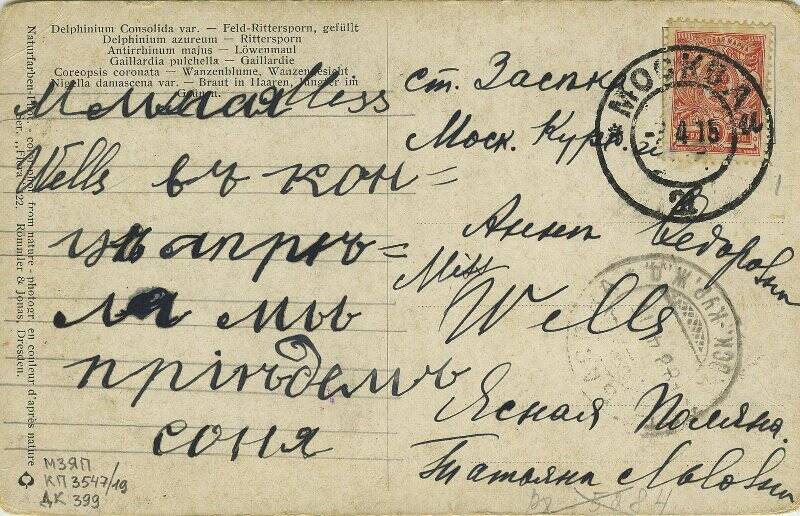 Delphinium Consolida var. — Feld-Rittersporn, gefüllt
Delphinium azureum — Rittersporn
Antirrhinum majus — Löwenmaul
Gaillardia pulchella — Gaillardie
Coreopsis coronata — Wanzenblume, Wanzengesicht
Nigella damascena var. — Braut in Haaren, Jungfer im
Grünen.
Милая Miss
Wells въ кон=
цѣ апрѣ=
ля мы
пріѣдемъ
соня
ст. Засѣка
Моск. Курк.
Аннѣ Ѳедоровнѣ
Miss
Wells
Ясная Поляна.
Татьяна Львовна
МОСКВА
4 15
МЗЯП
КП 3547/19
ДК 399
Ser. „Flora" 22. Römmler & Jonas, Dresden.
from nature - photogr. en couleur d'après nature